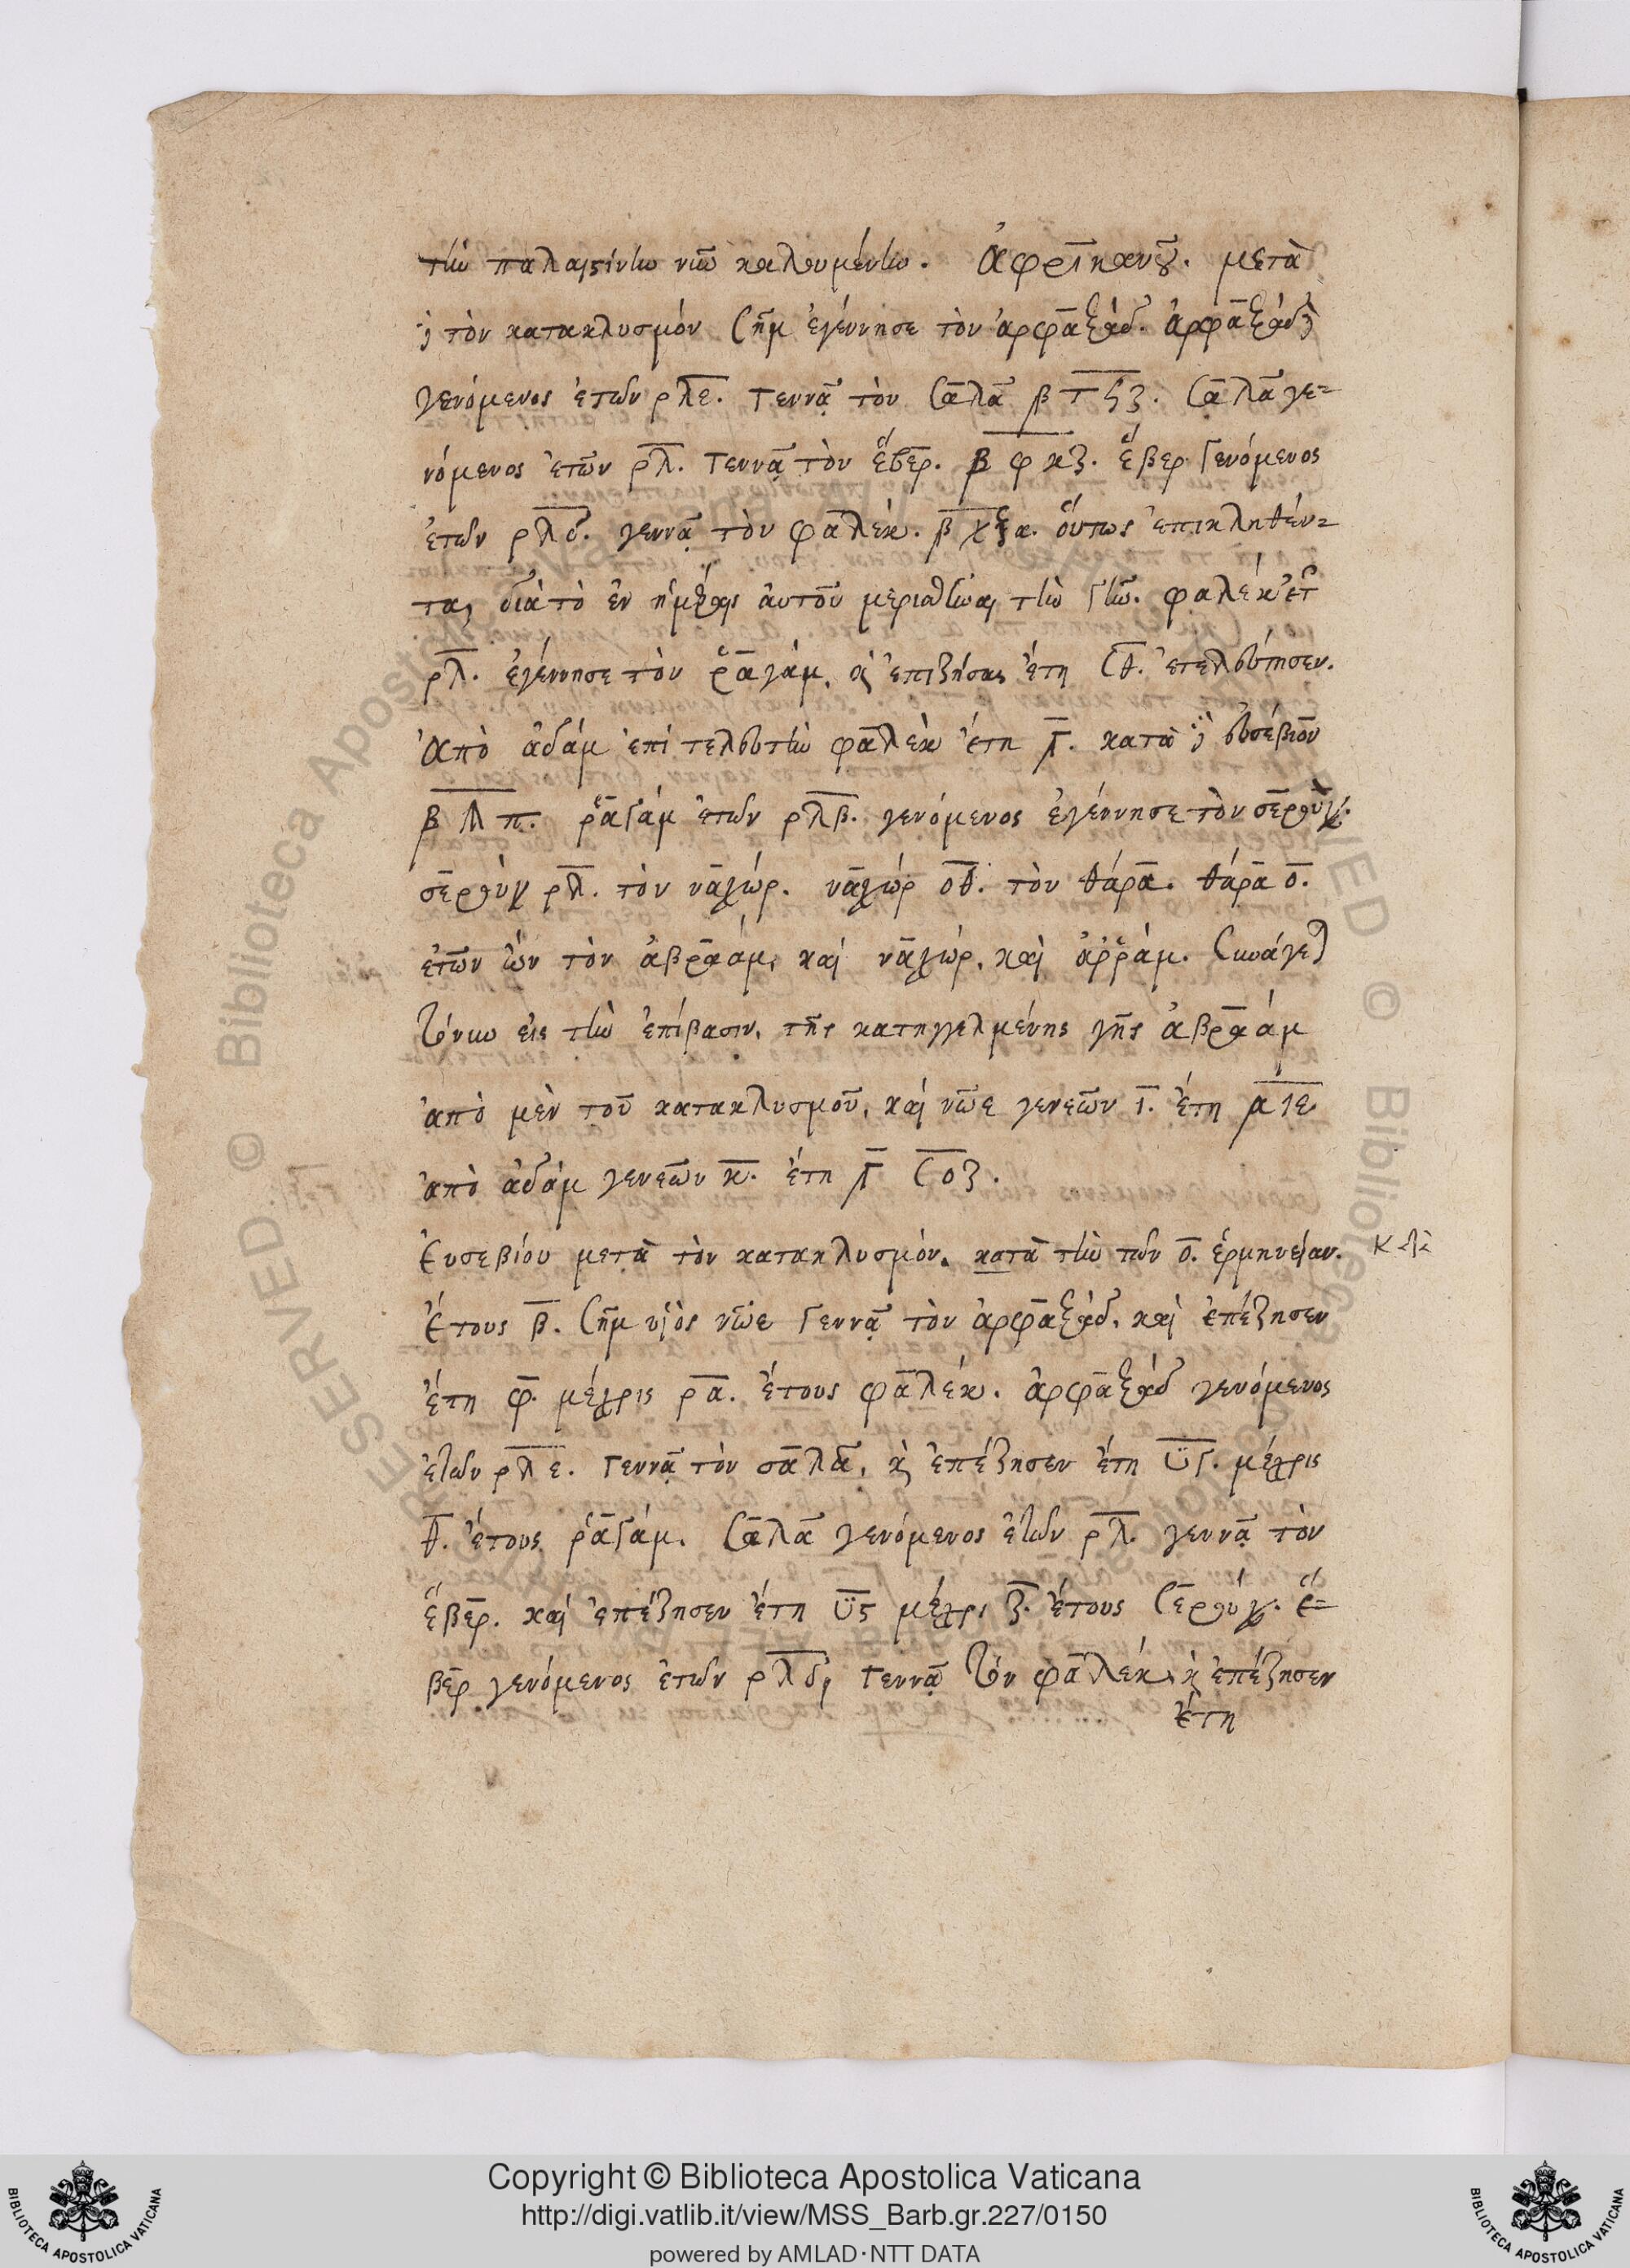 τὴν παλαιστίνην νῦν καλουμένην. Ἀφρικανοῦ. μετὰ
δὲ τὸν κατακλυσμόν Σὴμ ἐγέννησε τὸν ἀρφαξάδ. ἀρφαξάδ
γενόμενος ἐτῶν ρλε. Γεννᾷ τὸν Σαλᾶ β τϟζ. Σαλᾶ γε=
νόμενος ἐτῶν ρλ. Γεννᾷ τὸν ἕβερ. β φκζ. ἕβερ Γενόμενος
ἐτῶν ρλδ. γεννᾷ τὸν φαλέκ. β χξα. οὕτως ἐπικληθέν=
τα, διὰ τὸ ἐν ἡμέραις αὐτοῦ μερισθῆναι τὴν Γῆν. φαλέκ ἐτ
ρλ. ἐγέννησε τὸν ῥαγάμ, καὶ ἐπιζήσας ἔτη Σθ. ἐτελεύτησεν.
Ἀπὸ ἀδάμ ἐπὶ τελευτὴν φαλέκ ἔτη Γ. κατὰ δὲ εὐσέβιον
β Λπ. ῥαγάμ ἐτῶν ρλβ. γενόμενος ἐγέννησε τὸν σερούχ.
σερούχ ρλ. τὸν ναχώρ. ναχώρ οθ. τὸν θάρα. θάρα ο.
ἐτῶν ὢν τὸν ἀβραάμ, καὶ ναχώρ, καὶ ἀῤῥάμ. Συνάγε)
τοίνυν εἰς τὴν ἐπίβασιν, τῆς κατηγγελμένης γῆς ἀβραάμ
ἀπὸ μὲν τοῦ κατακλυσμοῦ, καὶ νῶε γενεῶν ι. ἔτη α ιε
ἀπὸ ἀδάμ γενεῶν κ. ἔτη Γ Σοζ.
Εὐσεβίου μετὰ τὸν κατακλυσμόν. κατὰ τὴν τῶν ο. ἑρμηνείαν.
Ἔτους β. Σὴμ υἱὸς νῶε Γεννᾷ τὸν ἀρφαξάδ, καὶ ἐπέζησεν
ἔτη φ. μέχρις ρα. ἔτους φαλέκ. ἀρφαξάδ γενόμενος
ἐτῶν ρλε. Γεννᾷ τὸν σαλᾶ, καὶ ἐπέζησεν ἔτη υγ. μέχρις
θ. ἔτους ῥαγάμ. Σαλᾶ γενόμενος ἐτῶν ρλ. γεννᾷ τὸν
ἕβερ. καὶ ἐπέζησεν ἔτη υϛ μέχρι ζ. ἔτους Σερούχ. ἕ=
βερ γενόμενος ἐτῶν ρλδ, Γεννᾷ τὸν φαλέκ, καὶ ἐπέζησεν
ἔτη
Copyright © Biblioteca Apostolica Vaticana
http://digi.vatlib.it/view/MSS_Barb.gr.227/0150
powered by AMLAD·NTT DATA